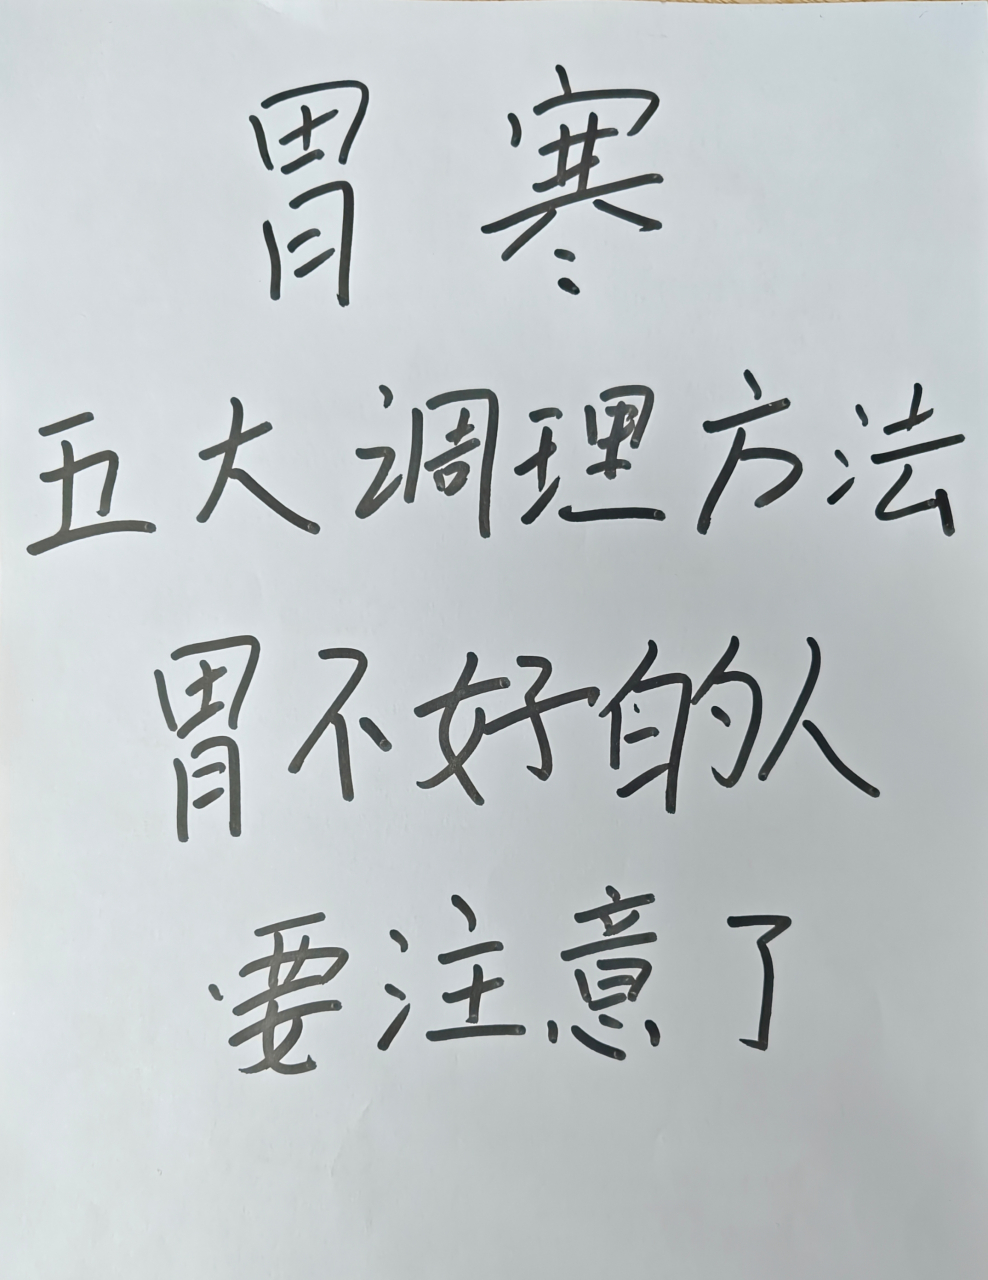 胃寒
五大调理方法
胃不好的人
要注意了